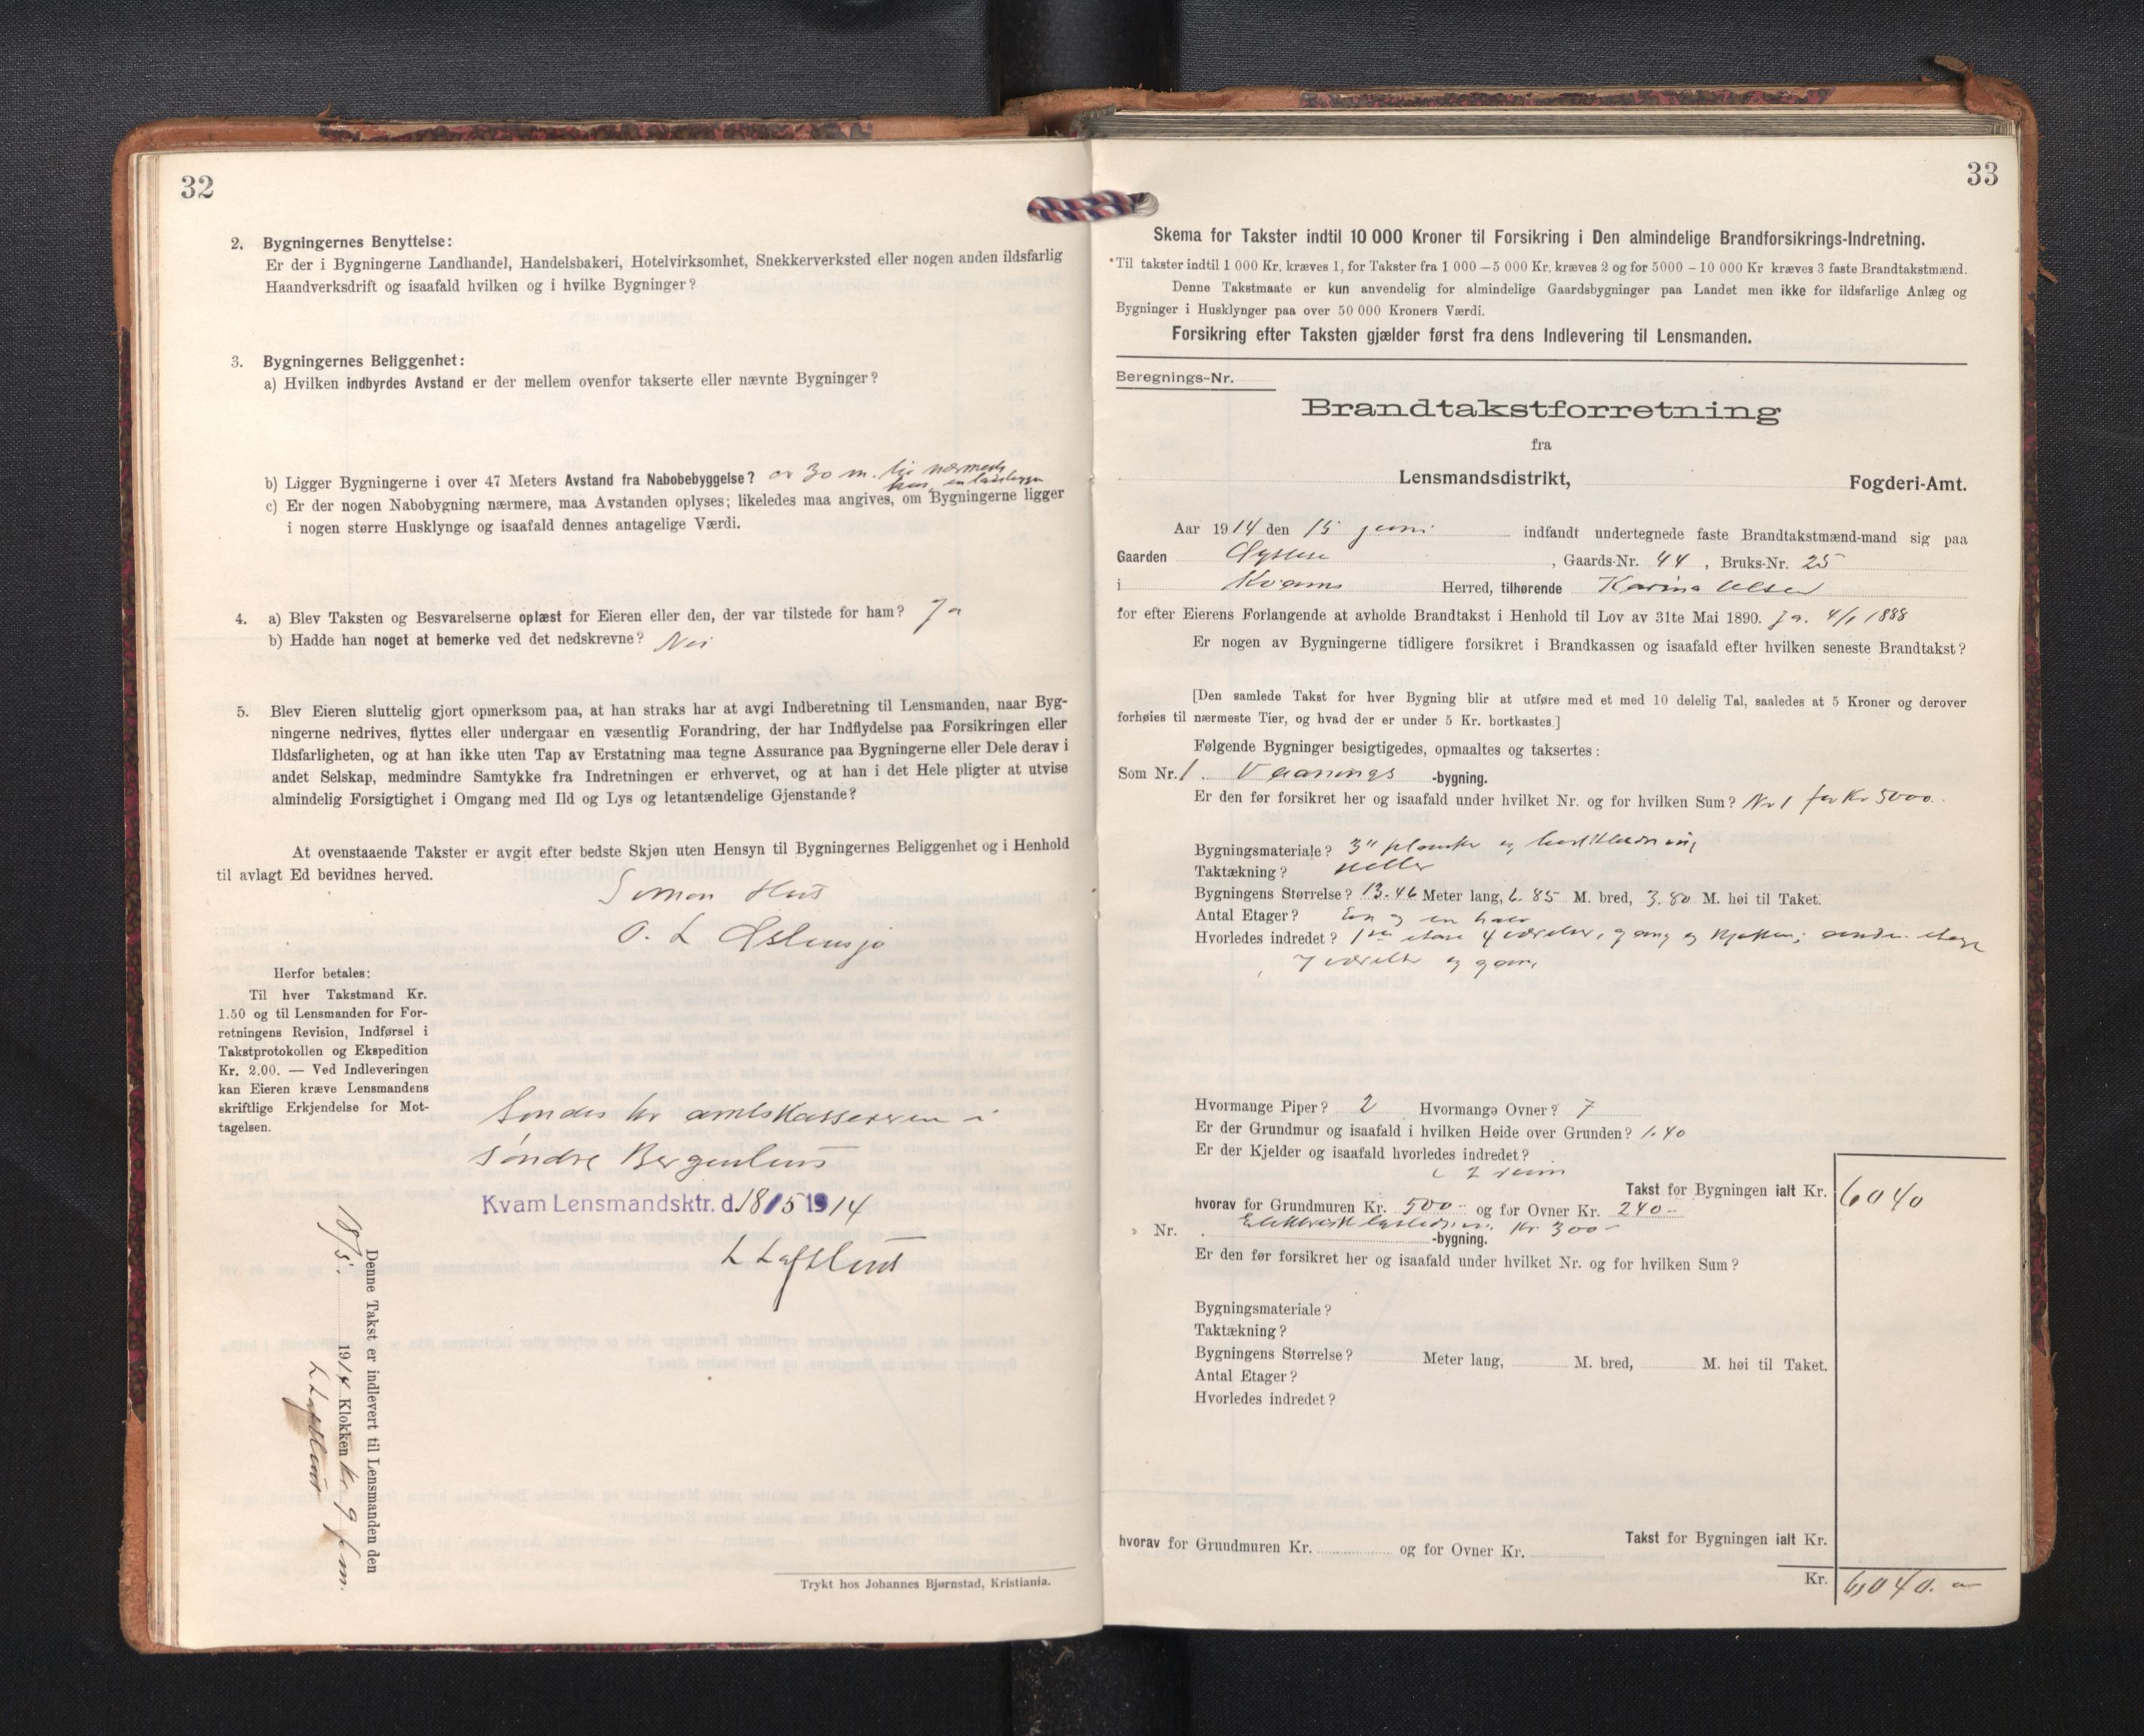 32
2. Bygningernes Benyttelse:
Er der i Bygningerne Landhandel, Handelsbakeri, Hotelvirksomhet, Snekkerverksted eller nogen anden ildsfarlig
Haandverksdrift og isaafald hvilken og i hvilke Bygninger?
3. Bygningernes Beliggenhet:
a) Hvilken indbyrdes Avstand er der mellem ovenfor takserte eller nævnte Bygninger?
b) Ligger Bygningerne i over 47 Meters Avstand fra Nabobebyggelse? 30 m. nærmeste
c) Er der nogen Nabobygning nærmere, maa Avstanden oplyses; likeledes maa angives, om Bygningerne ligger
i nogen større Husklynge og isaafald dennes antagelige Værdi.
4. a) Blev Taksten og Besvarelserne oplæst for Eieren eller den, der var tilstede for ham? Ja
b) Hadde han noget at bemerke ved det nedskrevne? Nei
5. Blev Eieren sluttelig gjort opmerksom paa, at han straks har at avgi Indberetning til Lensmanden, naar Byg-
ningerne nedrives, flyttes eller undergaar en væsentlig Forandring, der har Indflydelse paa Forsikringen eller
Ildsfarligheten, og at han ikke uten Tap av Erstatning maa tegne Assurance paa Bygningerne eller Dele derav i
andet Selskap, medmindre Samtykke fra Indretningen er erhvervet, og at han i det Hele pligter at utvise
almindelig Forsigtighet i Omgang med Ild og Lys og letantændelige Gjenstande?
At ovenstaaende Takster er avgit efter bedste Skjøn uten Hensyn til Bygningernes Beliggenhet og i Henhold
til avlagt Ed bevidnes herved.
Simon
O. L Østensjø
Herfor betales:
Til hver Takstmand Kr.
1.50 og til Lensmanden for For-
retningens Revision, Indførsel i
Takstprotokollen og Ekspedition
Kr. 2.00. — Ved Indleveringen
kan Eieren kræve Lensmandens
skriftlige Erkjendelse for Mot-
tagelsen.
Sendes hr amtskassereren i
Søndre Bergenhus
Kvam Lensmandsktr. d. 18/5 1914
Denne Takst er indlevert til Lensmanden den
18/5. 1914 Klokken kl. 9 fm.
Trykt hos Johannes Bjørnstad, Kristiania.
33
Skema for Takster indtil 10 000 Kroner til Forsikring i Den almindelige Brandforsikrings-Indretning.
*Til takster indtil 1 000 Kr. kræves 1, for Takster fra 1 000 – 5 000 Kr. kræves 2 og for 5000 – 10 000 Kr kræves 3 faste Brandtakstmænd.
Denne Takstmaate er kun anvendelig for almindelige Gaardsbygninger paa Landet men ikke for ildsfarlige Anlæg og
Bygninger i Husklynger paa over 50 000 Kroners Værdi.
Forsikring efter Taksten gjælder først fra dens Indlevering til Lensmanden.
Beregnings-Nr.
Brandtakstforretning
fra
Lensmandsdistrikt, Fogderi-Amt.
Aar 1914 den 15 juni indfandt undertegnede faste Brandtakstmænd-mand sig paa
Gaarden Øystese, Gaards-Nr. 44, Bruks-Nr. 25
i Kvams Herred, tilhørende Karina Olsen
for efter Eierens Forlangende at avholde Brandtakst i Henhold til Lov av 31te Mai 1890. Ja. 4/1 1888
Er nogen av Bygningerne tidligere forsikret i Brandkassen og isaafald efter hvilken seneste Brandtakst?
[Den samlede Takst for hver Bygning blir at utføre med et med 10 delelig Tal, saaledes at 5 Kroner og derover
forhøies til nærmeste Tier, og hvad der er under 5 Kr. bortkastes.]
Følgende Bygninger besigtigedes, opmaaltes og taksertes:
Som Nr. 1. Vaanings -bygning.
Er den før forsikret her og isaafald under hvilket Nr. og for hvilken Sum? Nr 1 for Kr 5000.
Bygningsmateriale? 3" planker og bordklædning
Taktækning? heller
Bygningens Størrelse? 13.46 Meter lang, 6.85 M. bred, 3.80 M. høi til Taket.
Antal Etager? En og en halv
Hvorledes indredet? 1ste etage 4 værelser, gang og kjøkken; anden etage
7 værelser og gang
Hvormange Piper? 2 Hvormange Ovner? 7
Er der Grundmur og isaafald i hvilken Høide over Grunden? 1.40
Er der Kjelder og isaafald hvorledes indredet?
i 2 rum
Takst for Bygningen ialt Kr. 6040
hvorav for Grundmuren Kr. 500 - og for Ovner Kr. 240 -
Elektrisk Kr. 300 -
» Nr. -bygning.
Er den før forsikret her og isaafald under hvilket Nr. og for hvilken Sum?
Bygningsmateriale?
Taktækning?
Bygningens Størrelse? Meter lang, M. bred, M. høi til Taket.
Antal Etager?
Hvorledes indredet?
Takst for Bygningen ialt Kr.
hvorav for Grundmuren Kr. og for Ovner Kr.
Kr. 6040.